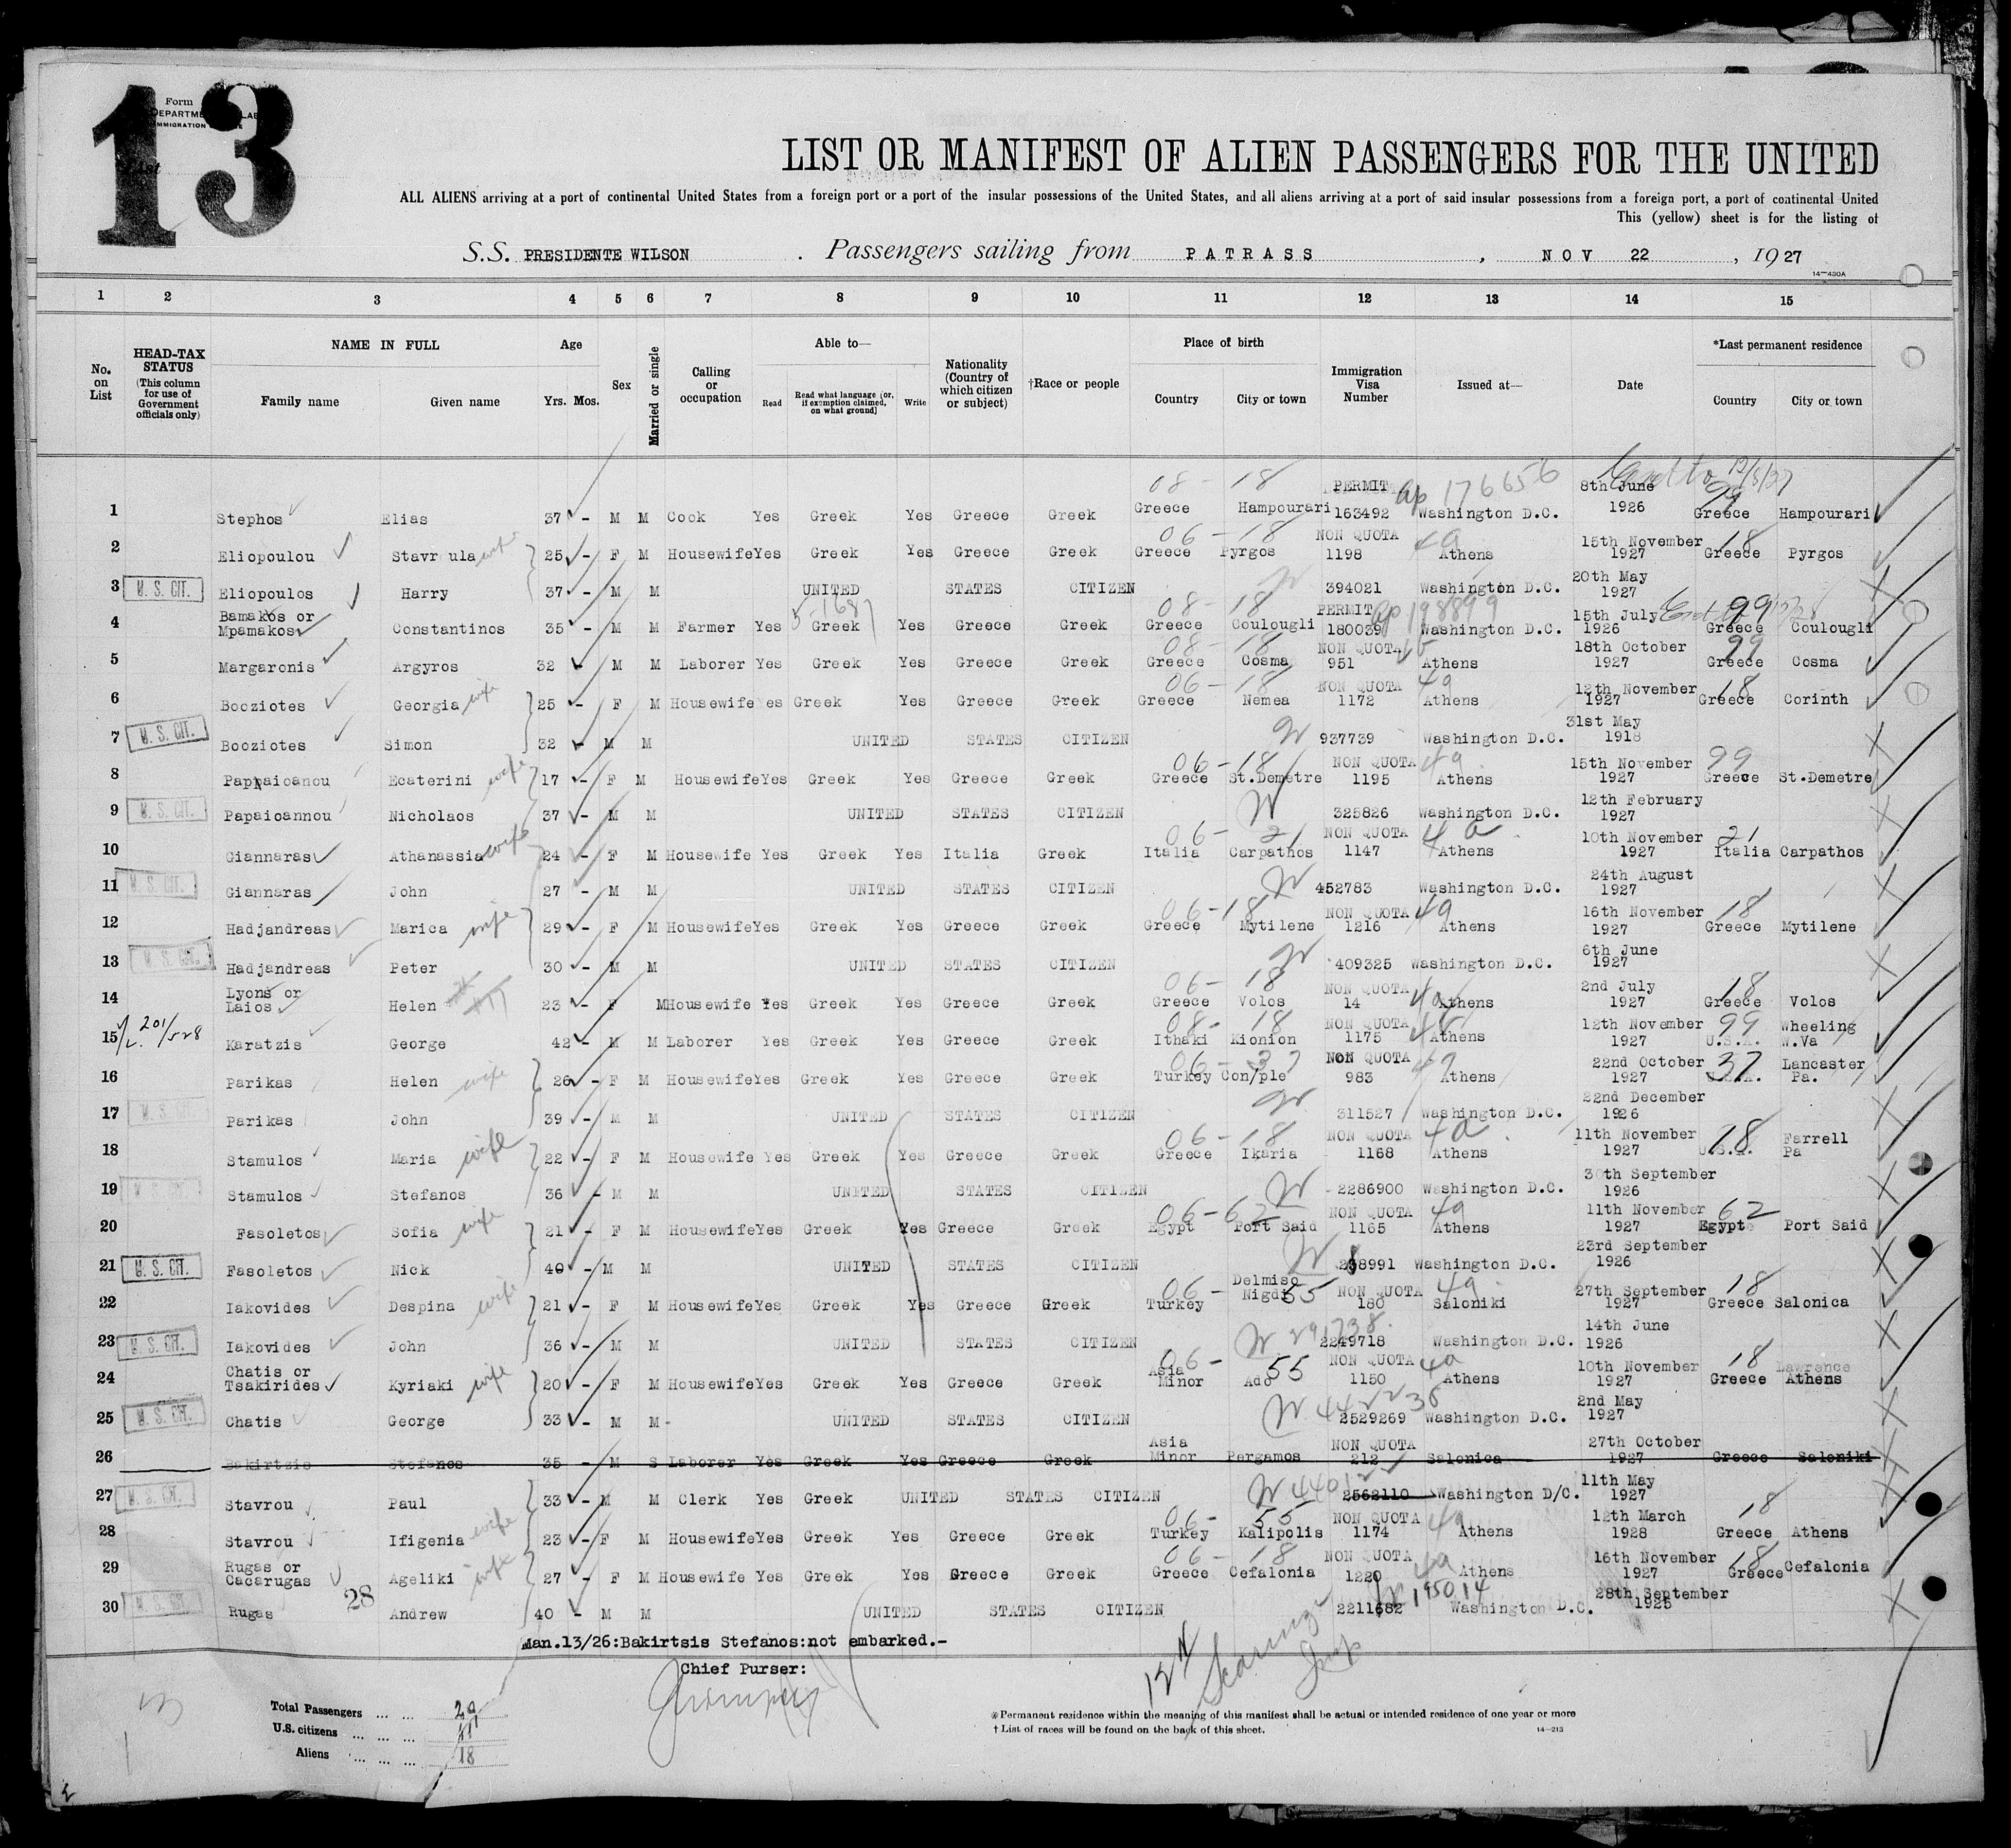 13
Form
DEPARTME LAB
MMIGRATION
List
LIST OR MANIFEST OF ALIEN PASSENGERS FOR THE UNITED
ALL ALIENS arriving at a port of continental United States from a foreign port or a port of the insular possessions of the United States, and all aliens arriving at a port of said insular possessions from a foreign port, a port of continental United
This (yellow) sheet is for the listing of
S.S. PRESIDENTE WILSON . Passengers sailing from PATRASS , NOV 22 , 1927
14—430A
1 2 3 4 5 6 7 8 9 10 11 12 13 14 15
No. on List
HEAD-TAX STATUS (This column for use of Government officials only)
NAME IN FULL
Family name Given name
Age
Yrs. Mos.
Sex
Married or single
Calling or occupation
Able to—
Read Read what language (or, if exemption claimed, on what ground) Write
Nationality (Country of which citizen or subject)
†Race or people
Place of birth
Country City or town
Immigration Visa Number
Issued at—
Date
*Last permanent residence
Country City or town
08 - 18 PERMIT ap 176656 8th June 99
1 Stephos Elias 37 - M M Cook Yes Greek Yes Greece Greek Greece Hampourari 163492 Washington D.C. 1926 Greece Hampourari
06 - 18 NON QUOTA 4a 15th November 18
2 Eliopoulou Stavroula wife 25 - F M Housewife Yes Greek Yes Greece Greek Greece Pyrgos 1198 Athens 1927 Greece Pyrgos
3 U. S. CIT. Eliopoulos Harry 37 - M M UNITED STATES CITIZEN 394021 Washington D.C. 20th May 1927
Bamakos or 08 - 18 PERMIT ap 198899 15th July 99
4 Mpamakos Constantinos 35 - M M Farmer Yes Greek Yes Greece Greek Greece Coulougli 180039 Washington D.C. 1926 Greece Coulougli
08 - 18 NON QUOTA 18th October 99
5 Margaronis Argyros 32 - M M Laborer Yes Greek Yes Greece Greek Greece Cosma 951 Athens 1927 Greece Cosma
06 - 18 NON QUOTA 4a 12th November 18
6 Booziotes Georgia wife 25 - F M Housewife Yes Greek Yes Greece Greek Greece Nemea 1172 Athens 1927 Greece Corinth
7 U. S. CIT. Booziotes Simon 32 - M M UNITED STATES CITIZEN 937739 Washington D.C. 31st May 1918
06 - 18 NON QUOTA 4a 15th November 99
8 Pappaioanou Ecaterini wife 17 - F M Housewife Yes Greek Yes Greece Greek Greece St.Demetre 1195 Athens 1927 Greece St.Demetre
9 U. S. CIT. Papaioannou Nicholaos 37 - M M UNITED STATES CITIZEN 325826 Washington D.C. 12th February 1927
06 - 21 NON QUOTA 4a 10th November 21
10 Giannaras Athanassia wife 24 - F M Housewife Yes Greek Yes Italia Greek Italia Carpathos 1147 Athens 1927 Italia Carpathos
11 U. S. CIT. Giannaras John 27 - M M UNITED STATES CITIZEN 452783 Washington D.C. 24th August 1927
06 - 18 NON QUOTA 4a 16th November 18
12 Hadjandreas Marica wife 29 - F M Housewife Yes Greek Yes Greece Greek Greece Mytilene 1216 Athens 1927 Greece Mytilene
13 U. S. CIT. Hadjandreas Peter 30 - M M UNITED STATES CITIZEN 409325 Washington D.C. 6th June 1927
Lyons or 06 - 18 NON QUOTA 2nd July 18
14 Laios Helen 23 - F M Housewife Yes Greek Yes Greece Greek Greece Volos 14 4a Athens 1927 Greece Volos
08 - 18 NON QUOTA 12th November 99 Wheeling
15 201/528 Karatzis George 42 - M M Laborer Yes Greek Yes Greece Greek Ithaki Kionion 1175 Athens 1927 U.S.A. W.Va
06 - 37 NON QUOTA 22nd October 37 Lancaster
16 Parikas Helen wife 26 - F M Housewife Yes Greek Yes Greece Greek Turkey Con/ple 983 Athens 1927 U.S.A. Pa.
17 U. S. CIT. Parikas John 39 - M M UNITED STATES CITIZEN 311527 Washington D.C. 22nd December 1926
06 - 18 NON QUOTA 4a 11th November 18 Farrell
18 Stamulos Maria wife 22 - F M Housewife Yes Greek Yes Greece Greek Greece Ikaria 1168 Athens 1927 U.S.A. Pa
19 U. S. CIT. Stamulos Stefanos 36 - M M UNITED STATES CITIZEN 2286900 Washington D.C. 30th September 1926
06 - 62 NON QUOTA 4a 11th November 62
20 Fasoletos Sofia wife 21 - F M Housewife Yes Greek Yes Greece Greek Egypt Port Said 1165 Athens 1927 Egypt Port Said
21 U. S. CIT. Fasoletos Nick 40 - M M UNITED STATES CITIZEN 238991 Washington D.C. 23rd September 1926
06 - 55 Delmiso NON QUOTA 4a 27th September 18
22 Iakovides Despina wife 21 - F M Housewife Yes Greek Yes Greece Greek Turkey Nigdi 180 Saloniki 1927 Greece Salonica
291738
23 U. S. CIT. Iakovides John 36 - M M UNITED STATES CITIZEN 2249718 Washington D.C. 14th June 1926
Chatis or 06 - 55 Asia NON QUOTA 4a 10th November 18 Lawrence
24 Tsakirides Kyriaki wife 20 - F M Housewife Yes Greek Yes Greece Greek Minor Ado 1150 Athens 1927 Greece Athens
25 U. S. CIT. Chatis George 33 - M M - UNITED STATES CITIZEN 2529269 Washington D.C. 2nd May 1927
Asia NON QUOTA 27th October
26 Bakirtzis Stefanos 35 - M S Laborer Yes Greek Yes Greece Greek Minor Pergamos 212 Salonica 1927 Greece Saloniki
27 U. S. CIT. Stavrou Paul 33 - M M Clerk Yes Greek UNITED STATES CITIZEN 2562110 Washington D/C. 11th May 1927
06 - 55 NON QUOTA 4a 12th March 18
28 Stavrou Ifigenia wife 23 - F M Housewife Yes Greek Yes Greece Greek Turkey Kalipolis 1174 Athens 1928 Greece Athens
Rugas or 06 - 18 NON QUOTA 4a 16th November 18
29 Cacarugas Ageliki wife 27 - F M Housewife Yes Greek Yes Greece Greek Greece Cefalonia 1220 Athens 1927 Greece Cefalonia
195014
30 U. S. CIT. Rugas 28 Andrew 40 - M M UNITED STATES CITIZEN 2211682 Washington D.C. 28th September 1925
Man.13/26:Bakirtsis Stefanos:not embarked.-
Chief Purser:
Total Passengers ... ... 29
U.S. citizens ... ... ... 11
Aliens ... ... ... 18
*Permanent residence within the meaning of this manifest shall be actual or intended residence of one year or more
† List of races will be found on the back of this sheet.
14—213